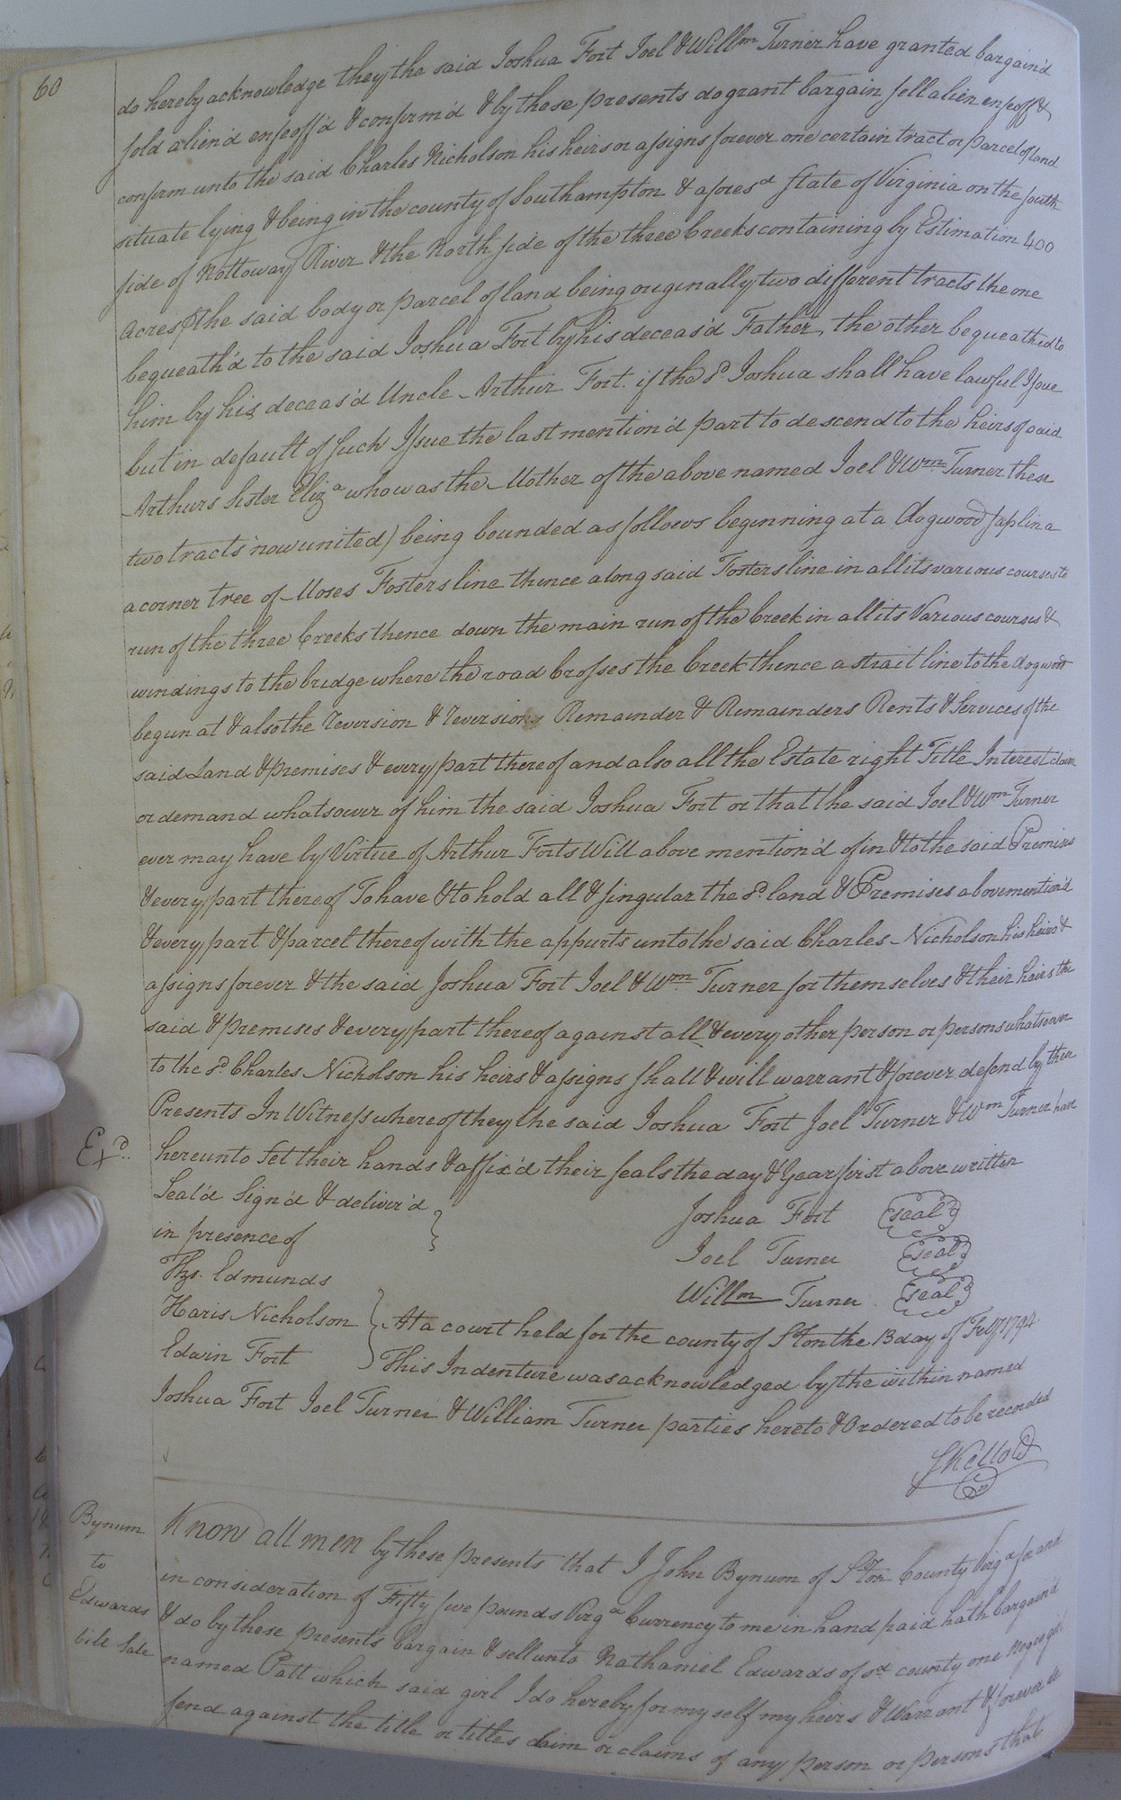 60
do hereby acknowledge they the said Joshua Fort Joel & Willm Turner have granted bargain'd
sold alien'd enfeoff'd & confirm'd & by these presents do grant bargain sell alien enfeoff &
confirm unto the said Charles Nicholson his heirs or assigns forever one certain tract or parcel of land
situate lying & being in the county of Southampton & afores.d State of Virginia on the south
side of Nottoway River & the North side of the three Creeks containing by Estimation 400
acres the said body or parcel of land being originally two different tracts the one
bequeath'd to the said Joshua Fort by his deceas'd Father, the other bequeathed to
him by his deceas'd Uncle Arthur Fort. if the sd Joshua shall have lawful Issue
but in default of such Issue the last mention'd part to descend to the heirs of said
Arthurs sister Eliza who was the Mother of the above named Joel & Wm Turner these
two tracts now united) being bounded as follows beginning at a dogwood saplin a
a corner tree of Moses Fosters line thence along said Fosters line in all its various courses to
run of the three Creeks thence down the main run of the Creek in all its Various courses &
windings to the bridge where the road Crosses the Creek thence a strait line to the dogwood
begun at & also the reversion & reversions Remainder & Remainders Rents & Services of the
said Land & premises & every part thereof and also all the Estate right Title Interest claim
or demand whatsoever of him the said Joshua Fort or that the said Joel & Wm Turner
ever may have by Virtue of Arthur Forts Will above mention'd of in & to the said Premises
& every part thereof To have & to hold all & singular the sd. land & Premises above mention'd
& every part & parcel thereof with the appurts unto the said Charles Nicholson his heirs &
assigns forever & the said Joshua Fort Joel & Wm Turner for themselves & their heirs the
said & premises & every part thereof against all & every other person or persons whatsoever
to the sd Charles Nicholson his heirs & assigns shall & will warrant & forever defend by these
Presents In Witness whereof they the said Joshua Fort Joel Turner & Wm Turner have
Exd. hereunto Set their hands & affix'd their seals the day & Year first above written
Seal'd Sign'd & deliver'd
in presence of
Joshua Fort (seal)
Joel Turner (seal)
Willm Turner (seal)
Ths. Edmunds
Haris Nicholson
Edwin Fort
At a court held for the county of Ston the 13 day of Feby 1794
This Indenture was acknowledged by the within named
Joshua Fort Joel Turner & William Turner parties hereto & Ordered to be recorded
S Kello
Bynum
to
Edwards
bill Sale
Know all men by these presents that I John Bynum of Ston County Virga for and
in consideration of Fifty five pounds Virga Currency to me in hand paid hath bargaind
& do by these presents bargain & sell unto Nathaniel Edwards of sd county one Negro girl
named Patt which said girl I do hereby for my self my heirs & Warrant & forever de
fend against the title or titles claim or claims of any person or persons that